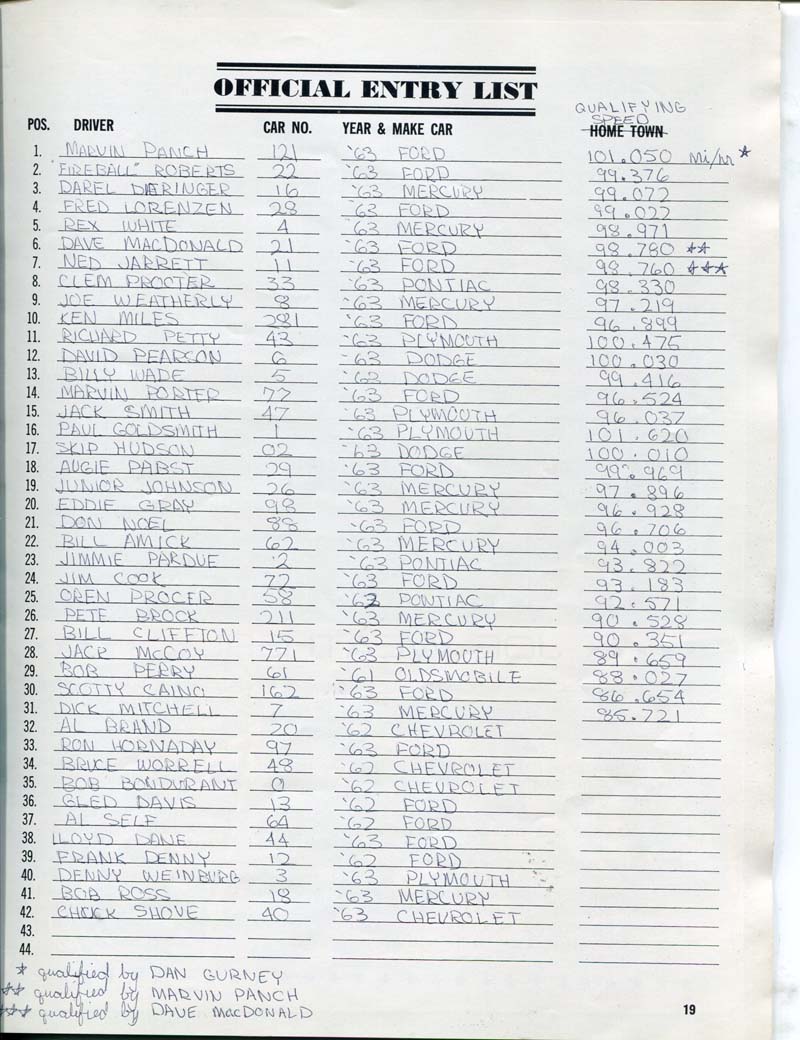 OFFICIAL ENTRY LIST
QUALIFYING
SPEED
POS. DRIVER CAR NO. YEAR & MAKE CAR HOME TOWN
1. MARVIN PANCH 121 '63 FORD 101.050 mi/hr *
2. "FIREBALL" ROBERTS 22 '63 FORD 99.376
3. DAREL DIERINGER 16 '63 MERCURY 99.072
4. FRED LORENZEN 28 '63 FORD 99.022
5. REX WHITE 4 '63 MERCURY 98.971
6. DAVE MACDONALD 21 '63 FORD 98.780 **
7. NED JARRETT 11 '63 FORD 98.760 ***
8. CLEM PROCTER 33 '63 PONTIAC 98.330
9. JOE WEATHERLY 8 '63 MERCURY 97.219
10. KEN MILES 281 '63 FORD 96.899
11. RICHARD PETTY 43 '63 PLYMOUTH 100.475
12. DAVID PEARSON 6 '63 DODGE 100.030
13. BILLY WADE 5 '62 DODGE 99.416
14. MARVIN PORTER 77 '63 FORD 96.524
15. JACK SMITH 47 '63 PLYMOUTH 96.037
16. PAUL GOLDSMITH 1 '63 PLYMOUTH 101.620
17. SKIP HUDSON 02 '63 DODGE 100.010
18. AUGIE PABST 29 '63 FORD 99.969
19. JUNIOR JOHNSON 26 '63 MERCURY 97.896
20. EDDIE GRAY 98 '63 MERCURY 96.928
21. DON NOEL 88 '63 FORD 96.706
22. BILL AMICK 62 '63 MERCURY 94.003
23. JIMMIE PARDUE 2 '63 PONTIAC 93.822
24. JIM COOK 72 '63 FORD 93.183
25. OREN PROCER 58 '62 PONTIAC 92.571
26. PETE BROCK 211 '63 MERCURY 90.528
27. BILL CLIFFTON 15 '63 FORD 90.351
28. JACK McCOY 771 '63 PLYMOUTH 89.659
29. BOB PERRY 61 '61 OLDSMOBILE 88.027
30. SCOTTY CAINO 162 '63 FORD 86.654
31. DICK MITCHELL 7 '63 MERCURY 85.721
32. AL BRAND 20 '62 CHEVROLET
33. RON HORNADAY 97 '63 FORD
34. BRUCE WORRELL 48 '62 CHEVROLET
35. BOB BONDURANT 0 '62 CHEVROLET
36. GLED DAVIS 13 '62 FORD
37. AL SELF 64 '62 FORD
38. LLOYD DANE 44 '63 FORD
39. FRANK DENNY 12 '62 FORD
40. DENNY WEINBURG 3 '63 PLYMOUTH
41. BOB ROSS 18 '63 MERCURY
42. CHUCK SHOVE 40 '63 CHEVROLET
43.
44.
* qualified by DAN GURNEY
** qualified by MARVIN PANCH
*** qualified by DAVE MacDONALD
19